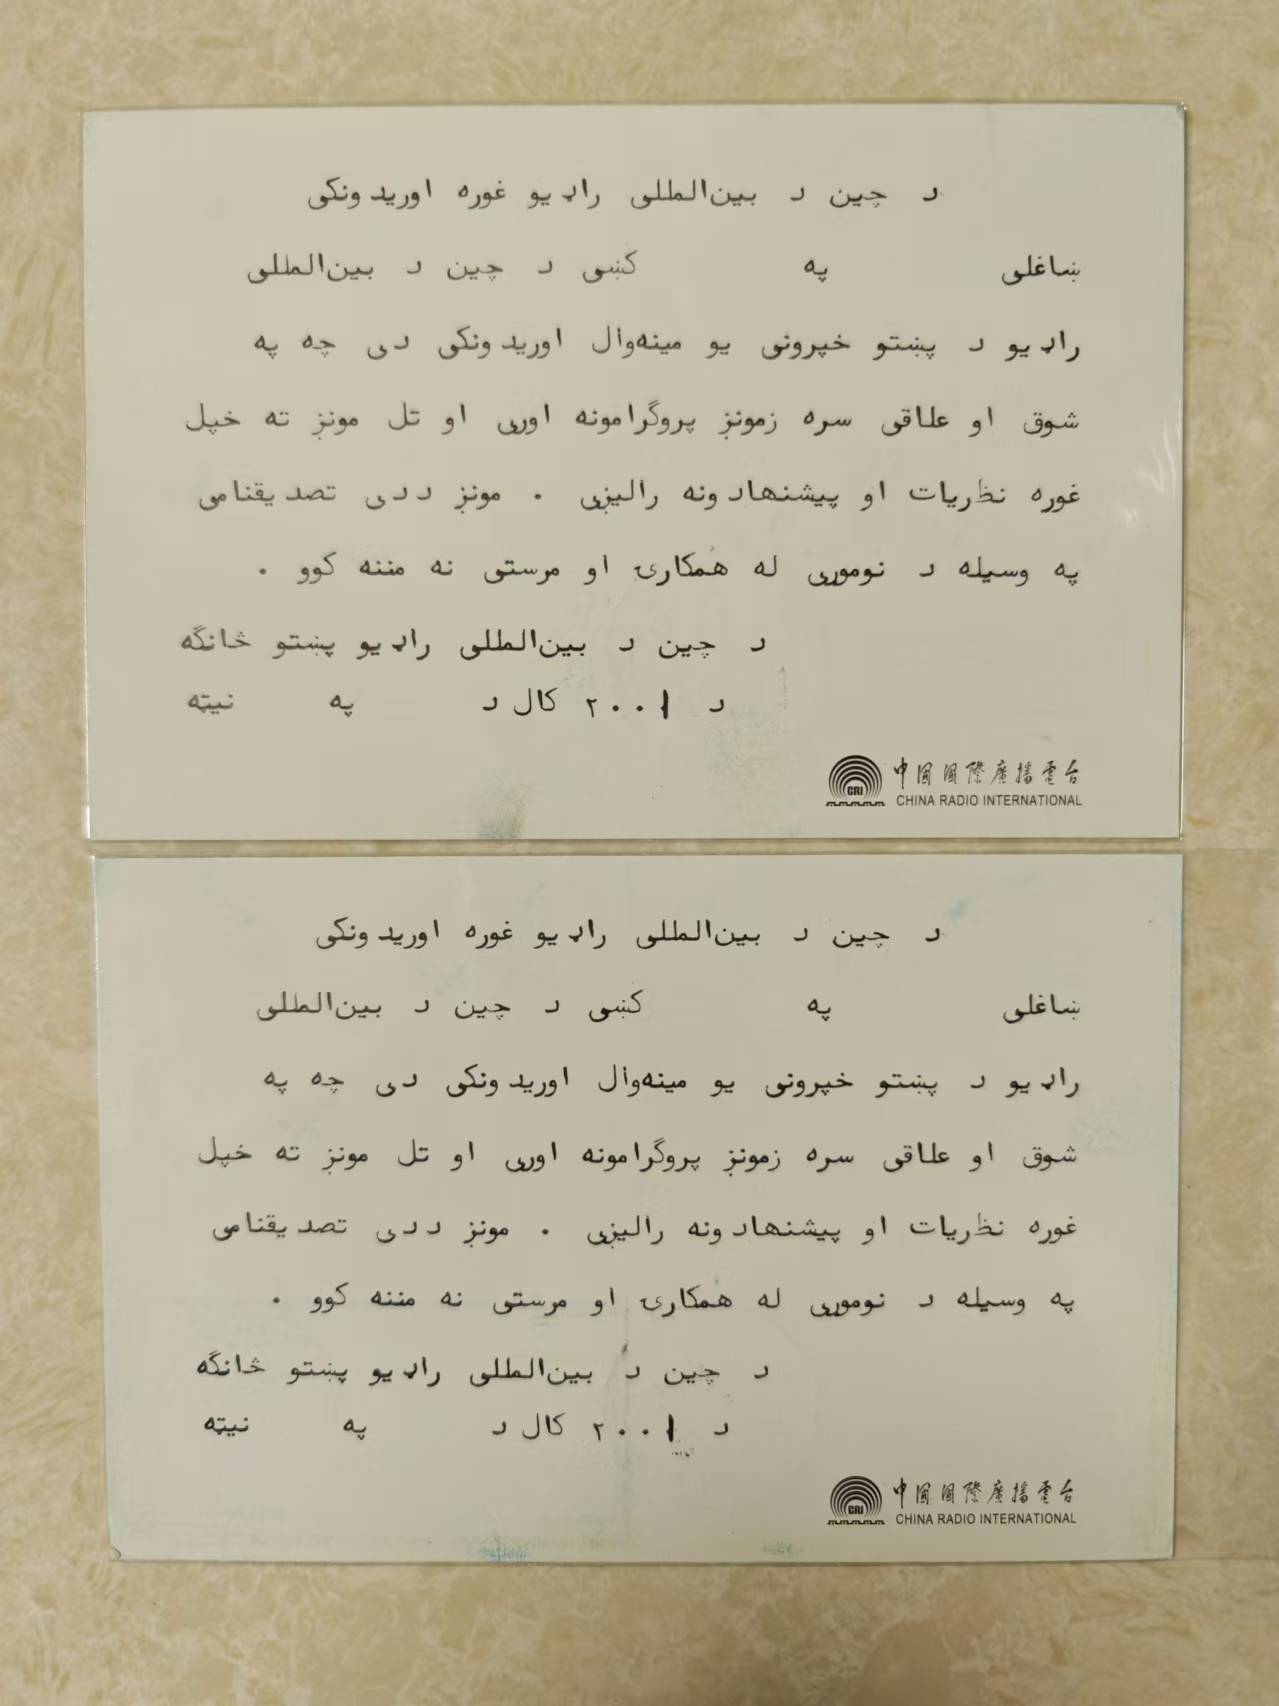 د چین د بین‌المللی راډیو غوره اوریدونکی
ښاغلی په کښی د چین د بین‌المللی
راډیو د پښتو خپرونی یو مینه‌وال اوریدونکی دی چه په
شوق او علاقی سره زمونږ پروگرامونه اوری او تل مونږ ته خپل
غوره نظریات او پیشنهادونه رالیږی .  مونږ ددی تصدیقنامی
په وسیله د نوموړی له همکاری او مرستی نه مننه کوو .
د چین د بین‌المللی راډیو پښتو څانگه
د ۲۰۰۱ کال د په نیټه
中国国際廣播電台
CRI CHINA RADIO INTERNATIONAL
د چین د بین‌المللی راډیو غوره اوریدونکی
ښاغلی په کښی د چین د بین‌المللی
راډیو د پښتو خپرونی یو مینه‌وال اوریدونکی دی چه په
شوق او علاقی سره زمونږ پروگرامونه اوری او تل مونږ ته خپل
غوره نظریات او پیشنهادونه رالیږی .  مونږ ددی تصدیقنامی
په وسیله د نوموړی له همکاری او مرستی نه مننه کوو .
د چین د بین‌المللی راډیو پښتو څانگه
د ۲۰۰۱ کال د په نیټه
中国国際廣播電台
CRI CHINA RADIO INTERNATIONAL